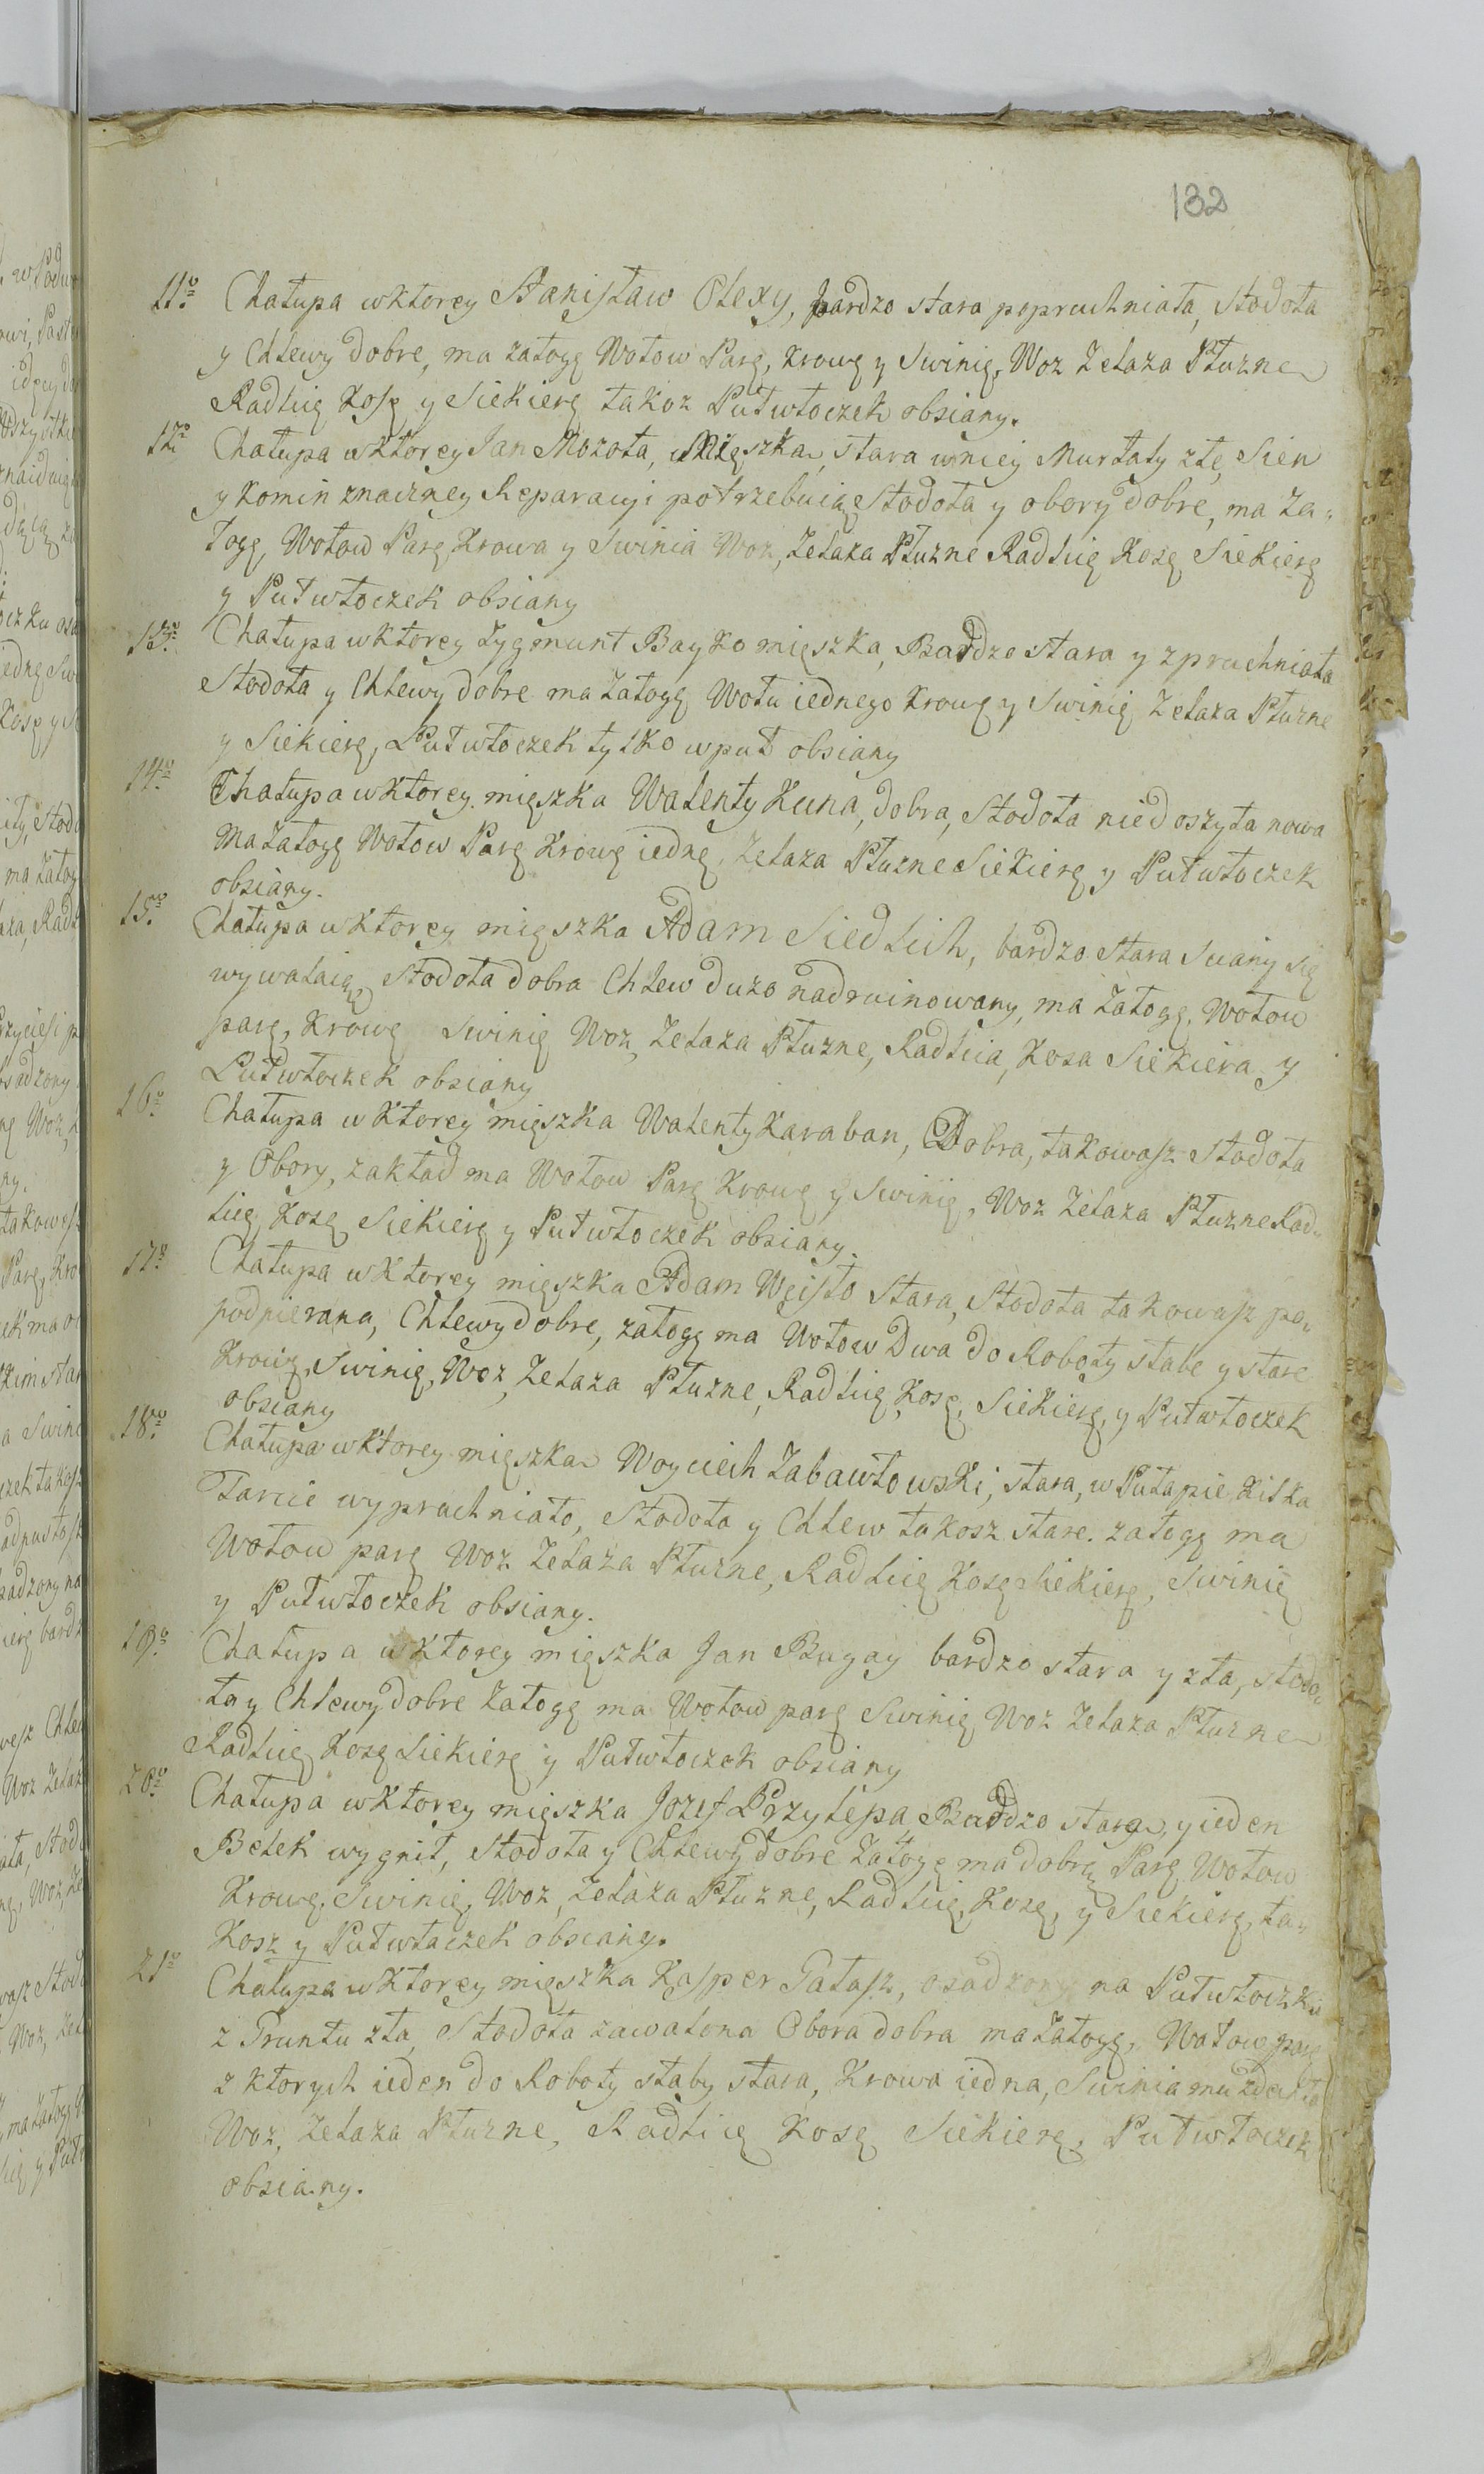 132
11º Chałupa wktorey Stanisław Olexy, bardzo stara popruchniała, Stodoła
y Chlewy dobre, ma załogę Wołow Parę, Krowę y Swinię, Woz Żelaza Płużne
Radlicę Kosę y Siekierę takoz Pułwłoczek obsiany.
12º Chałupa wktorey Jan Mozoła, Mięszka, stara wniey Murłaty złe, Sień
y Komin znaczney Reparacyi potrzebuią Stodoła y obory dobre, ma Za=
łogę, Wołow Parę Krowa y Swinia Woz, Żelaza Płużne Radlicę Kosę Siekierę
y Pułwłoczek obsiany
13º Chałupa wktorey Zygmunt Bayko mięszka, Bardzo stara y zpruchniała
Stodoła y Chlewy dobre ma Załogę Wołu iednego Krowę y Swinię Żelaza Płużne
y Siekierę, Pułwłoczek tylko wpuł obsiany
14º Chałupa wktorey mięszka Walenty Kuna, dobra, Stodoła niedoszyta nowa
Ma Załogę Wołow Parę Krowę iednę, Żelaza Płużne Siekierę y Pułwłoczek
obsiany.
15º Chałupa wktorey mięszka Adam Siedlich, bardzo stara Sciany się
wywalaią, Stodoła dobra Chlew dużo nadruinowany, ma Załogę, Wołow
parę, Krowę Swinię Woz, Żelaza Płużne, Radlica, Kosa Siekiera y
Pułwłoczek obsiany
16º Chałupa wktorey mięszka Walenty Karaban, Dobra, takowasz Stodoła
y Obory, zakład ma Wołow Parę Krowę y Swinię, Woz Żelaza Płużne Rad=
licę Kosę Siekierę y Pułwłoczek obsiany.
17º Chałupa wktorey mięszka Adam Węisło Stara, Stodoła takowasz po=
podpierana, Chlewy dobre, załogę ma Wołow Dwa do Roboty słabe y stare
Krowę, Swinię, Woz, Żelaza Płużne, Radlicę, Kosę, Siekierę, y Pułwłoczek
obsiany
18º Chałupa wktorey mięszka Woyciech Zabawłowski, stara, w Pułapie kilka
Tarcic wypruchniało, Stodoła y Chlew takosz stare. załogę ma
Wołow parę Woz Żelaza Płużne, Radlicę Kosę Siekierę, Swinię
y Pułwłoczek obsiany.
19º Chałupa wktorey mięszka Jan Bugay bardzo stara y zła, stodo=
ła y Chlewy dobre Załogę ma Wołow parę Swinię Woz Żelaza Płużne
Radlicę Kosę Siekierę y Pułwłoczek obsiany
20º Chałupa wktorey mięszka Jozef Przylepa Bardzo stara, y ieden
Belek wygnił, Stodoła y Chlewy dobre Załogę ma dobrą Parę Wołow
Krowę, Swinię, Woz, Żelaza Płużne, Radlicę, Kosę, y Siekierę, ta=
kosz y Pułwłaczek obsiany.
21º Chałupa wktorey mięszka Kasper Gałasz, osadzony na Pułwłoczku
z Gruntu zła, Stodoła zawalona Obora dobra ma Załogę, Wołow parę
z ktorych ieden do Roboty słaby stara, Krowa iedna, Swinia mu zdechła
Woz, Żelaza Płużne, Radlicę Kosę Siekierę, Pułwłoczek
obsiany.